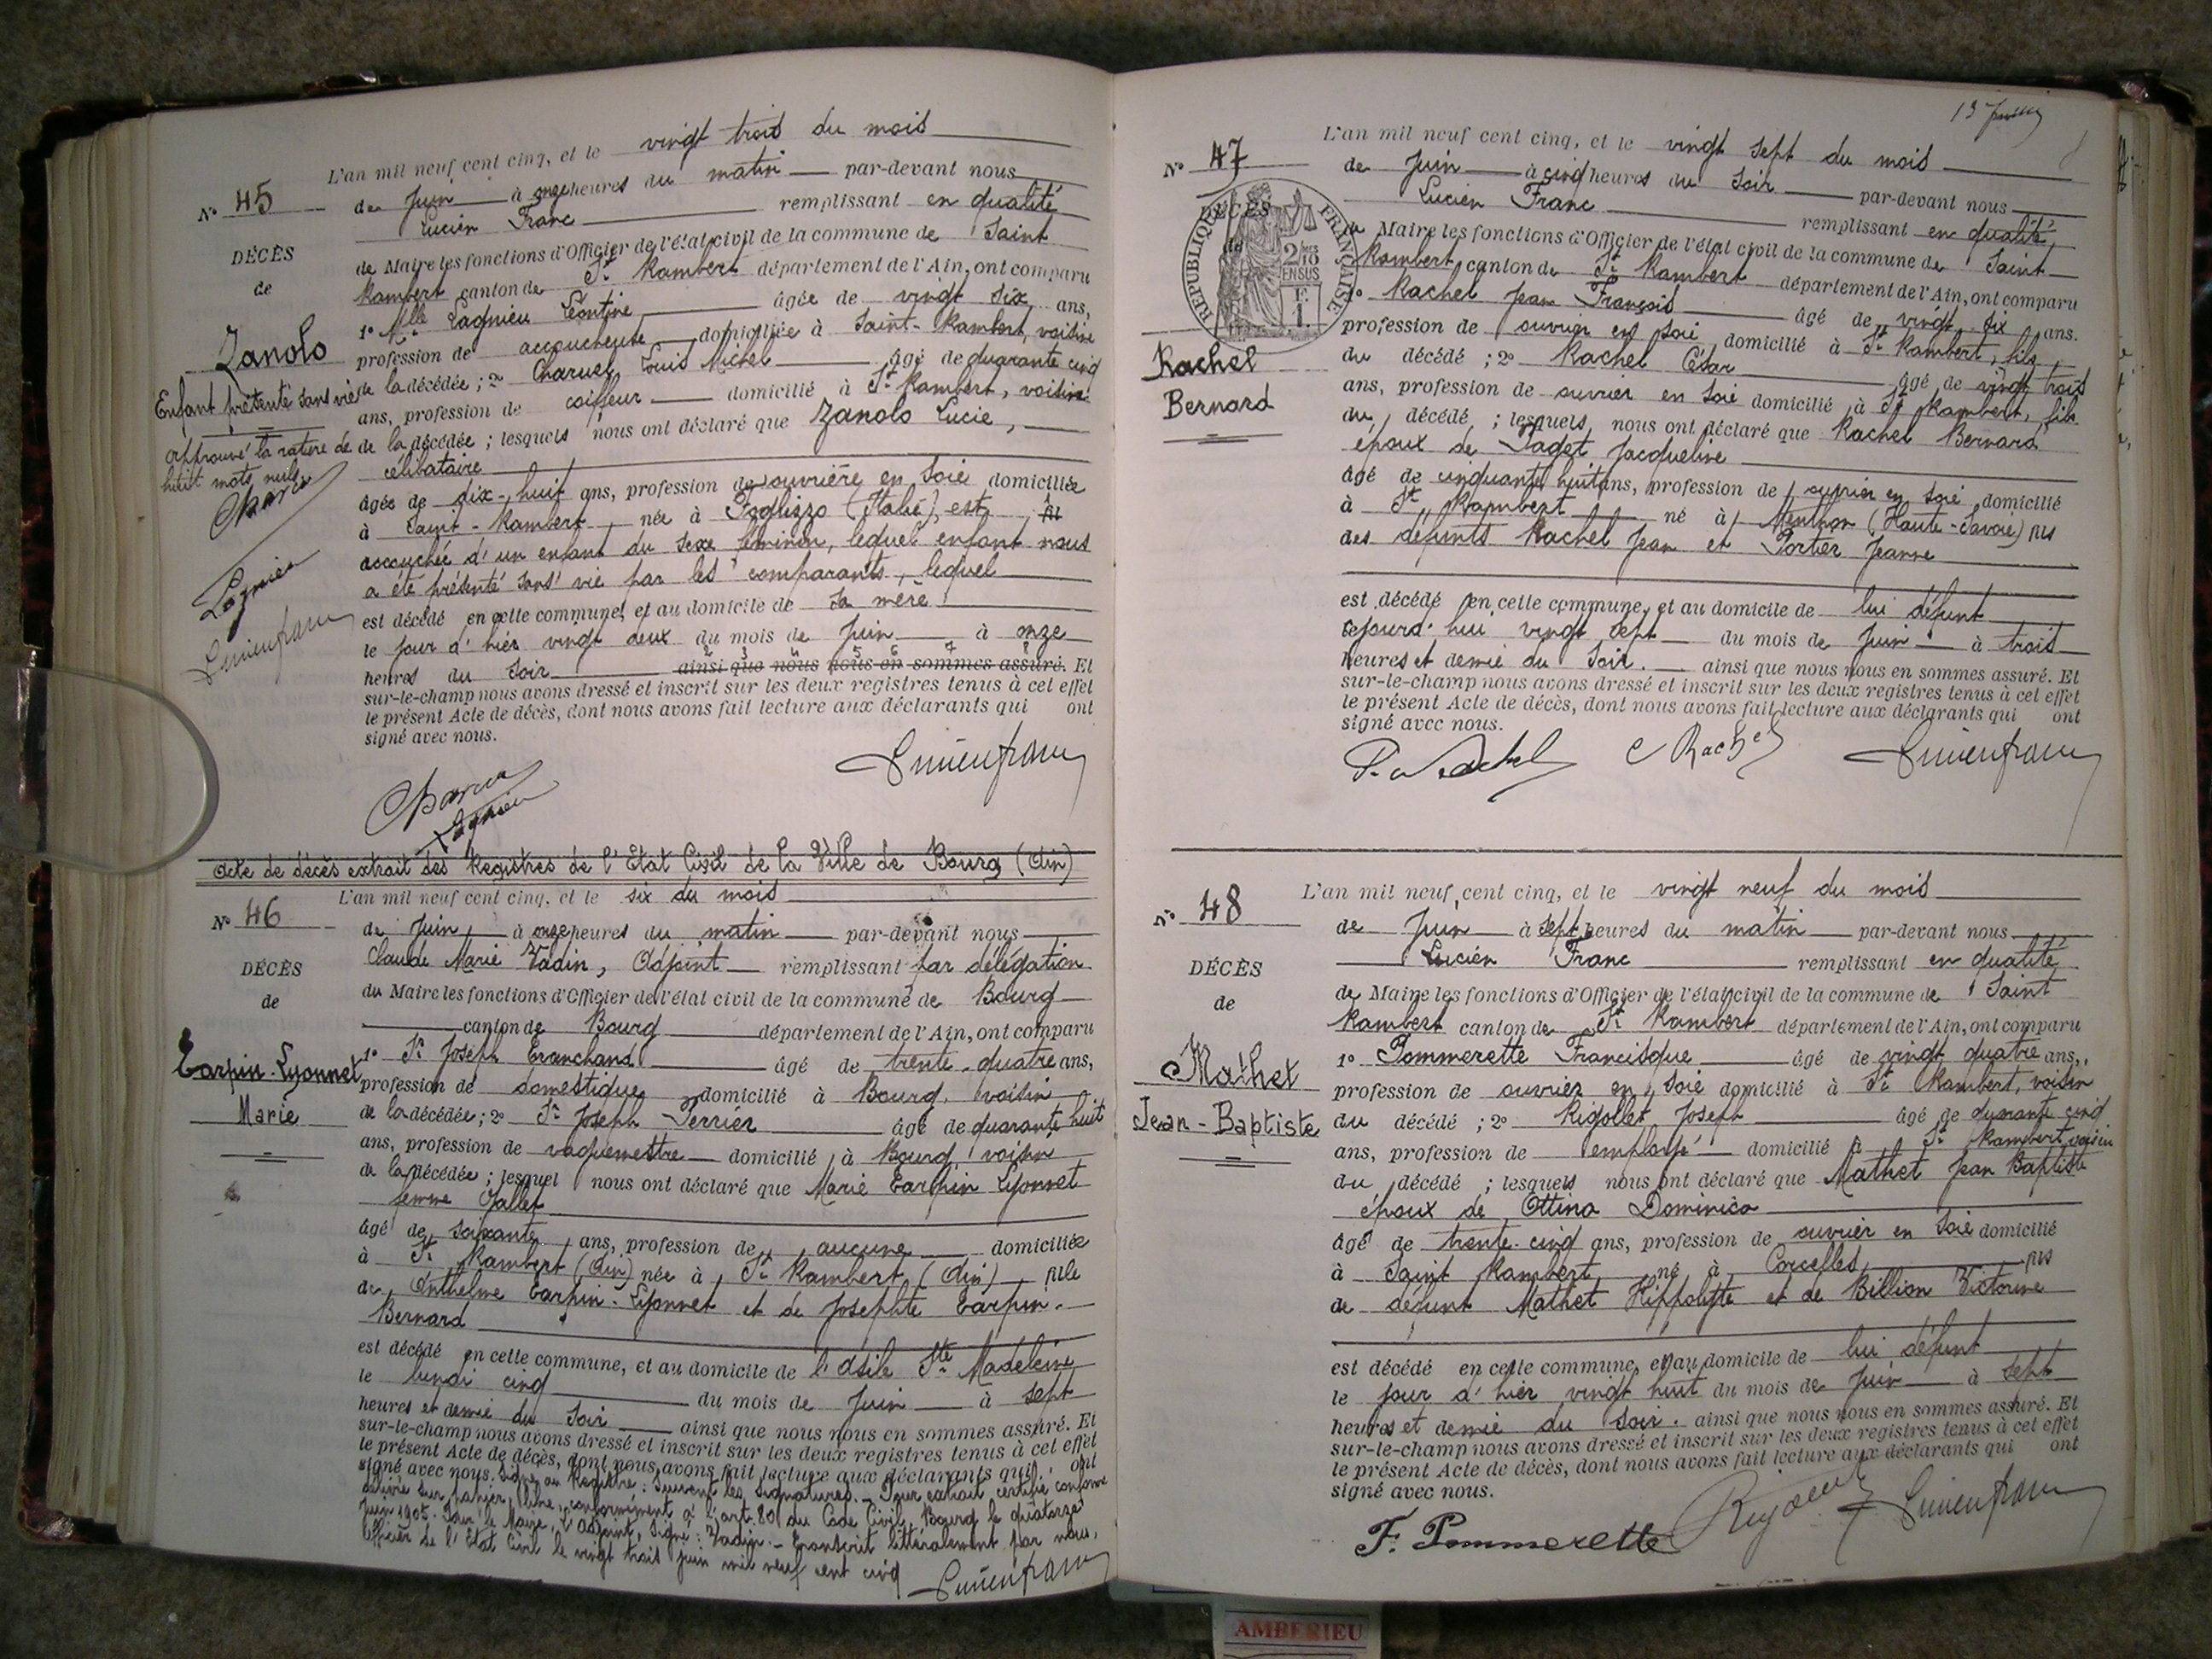 L'an mil neuf cent cinq, et le vingt trois du mois
N° 45
de Juin à onze heures du matin par-devant nous
Lucien Franc remplissant en qualité
DÉCÈS
de Maire les fonctions d'Officier de l'état civil de la commune de Saint
de
Rambert canton de St Rambert département de l'Ain, ont comparu
1° Melle Lagnieu Léontine âgée de vingt six ans,
Zanolo
profession de accoucheuse domiciliée à Saint-Rambert, voisine
Enfant présenté sans vie
de la décédée ; 2° Charvet Louis Michel âgé de quarante cinq
ans, profession de coiffeur domicilié à St Rambert, voisin
approuvé la rature de
huit mots nuls
de la décédée ; lesquels nous ont déclaré que Zanolo Lucie,
célibataire
âgée de dix-huit ans, profession de ouvrière en soie domiciliée
à Saint-Rambert, née à Foglizzo (Italie), est
accouchée d'un enfant du sexe féminin, lequel enfant nous
a été présenté sans vie par les comparants, lequel
Lagnieu
Lucien franc
est décédé en cette commune, et au domicile de sa mère
le jour d'hier vingt deux du mois de Juin à onze
2 3 4 5 6 7 8
heures du soir ainsi que nous nous en sommes assuré. Et
sur-le-champ nous avons dressé et inscrit sur les deux registres tenus à cet effet
le présent Acte de décès, dont nous avons fait lecture aux déclarants qui ont
signé avec nous.
Lucien franc
Lagnieu
Acte de décès extrait des Registres de l'Etat Civil de la Ville de Bourg (Ain)
L'an mil neuf cent cinq, et le six du mois
N° 46
de Juin, à onze heures du matin par-devant nous
Claude Marie Vadin, Adjoint remplissant par délégation
DÉCÈS
du Maire les fonctions d'Officier de l'état civil de la commune de Bourg
de
canton de Bourg département de l'Ain, ont comparu
1° Sr Joseph Tranchand âgé de trente-quatre ans,
Tarpin-Lyonnet
Marie
profession de domestique domicilié à Bourg, voisin
de la décédée ; 2° Sr Joseph Perrier âgé de quarante huit
ans, profession de vaguemestre domicilié à Bourg, voisin
de la décédée ; lesquel nous ont déclaré que Marie Tarpin Lyonnet
femme Gallet
âgé de soixante ans, profession de aucune domiciliée
à St Rambert (Ain) née à St Rambert (Ain), fille
de Anthelme Tarpin-Lyonnet et de Josephte Tarpin-
Bernard
est décédé en cette commune, et au domicile de l'Asile Ste Madeleine
le lundi cinq du mois de Juin à sept
heures et demie du soir ainsi que nous nous en sommes assuré. Et
sur-le-champ nous avons dressé et inscrit sur les deux registres tenus à cet effet
le présent Acte de décès, dont nous avons fait lecture aux déclarants qui ont
signé avec nous. Signé au Registre : Suivent les signatures. - Pour extrait certifié conforme
délivré sur papier libre, conformément à l'art. 80 du Code Civil, Bourg le quatorze
Juin 1905. Pour le Maire, L'Adjoint, Signé : Vadin. - Transcrit littéralement par nous,
Officier de l'Etat Civil le vingt trois juin mil neuf cent cinq
Lucien franc
L'an mil neuf cent cinq, et le vingt sept du mois
N° 47
de Juin à cinq heures du soir par-devant nous
Lucien Franc remplissant en qualité
DÉCÈS
de
RÉPUBLIQUE FRANÇAISE
2/10 EN SUS
1 F.
de Maire les fonctions d'Officier de l'état civil de la commune de Saint
Rambert canton de St Rambert département de l'Ain, ont comparu
1° Rachel Jean François âgé de vingt six ans.
profession de ouvrier en soie domicilié à St Rambert, fils
Rachel
Bernard
du décédé ; 2° Rachel César âgé de vingt trois
ans, profession de ouvrier en soie domicilié à St Rambert, fils
du décédé ; lesquels nous ont déclaré que Rachel Bernard
époux de Paget Jacqueline
âgé de cinquante huit ans, profession de ouvrier en soie domicilié
à St Rambert né à Menthon (Haute-Savoie) fils
des défunts Rachel Jean et Portier Jeanne
est décédé en cette commune, et au domicile de lui défunt
cejourd'hui vingt sept du mois de Juin à trois
heures et demie du soir. ainsi que nous nous en sommes assuré. Et
sur-le-champ nous avons dressé et inscrit sur les deux registres tenus à cet effet
le présent Acte de décès, dont nous avons fait lecture aux déclarants qui ont
signé avec nous.
C Rachel Lucien franc
L'an mil neuf cent cinq, et le vingt neuf du mois
N° 48
de Juin à sept heures du matin par-devant nous
Lucien Franc remplissant en qualité
DÉCÈS
de Maire les fonctions d'Officier de l'état civil de la commune de Saint
de
Rambert canton de St Rambert département de l'Ain, ont comparu
1° Pommerette Francisque âgé de vingt quatre ans,
Mathet
Jean-Baptiste
profession de ouvrier en soie domicilié à St Rambert, voisin
du décédé ; 2° Rigollet Joseph âgé de quarante cinq
ans, profession de employé domicilié à St Rambert, voisin
du décédé ; lesquels nous ont déclaré que Mathet Jean Baptiste
époux de Ottino Dominica
âgé de trente-cinq ans, profession de ouvrier en soie domicilié
à Saint Rambert né à Corcelles, fils
de défunt Mathet Hippolyte et de Billion Victorine
est décédé en cette commune, et au domicile de lui défunt
le jour d'hier vingt huit du mois de Juin à sept
heures et demie du soir. ainsi que nous nous en sommes assuré. Et
sur-le-champ nous avons dressé et inscrit sur les deux registres tenus à cet effet
le présent Acte de décès, dont nous avons fait lecture aux déclarants qui ont
signé avec nous.
F. Pommerette Lucien franc
AMBERIEU